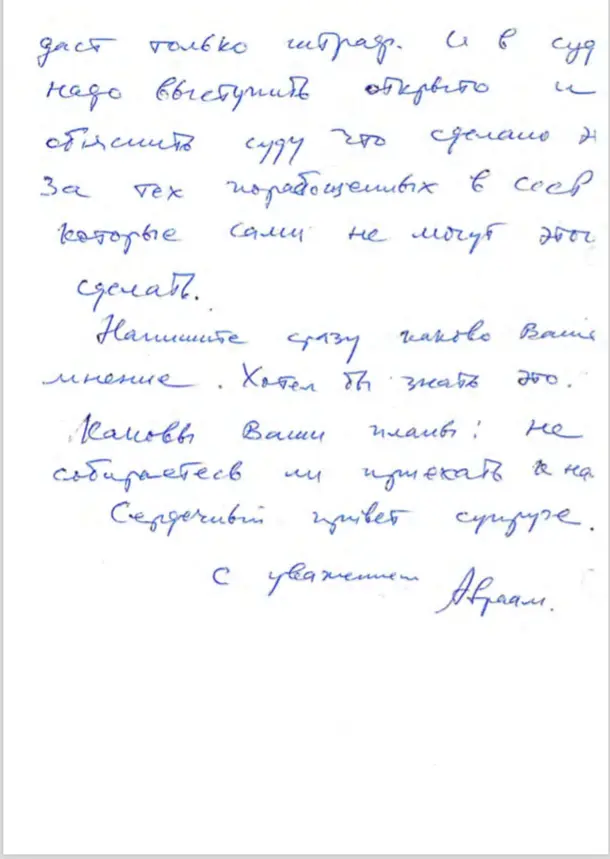 даст только штраф. И в суд
надо выступить открыто и
объяснить суду что сделано э
За тех порабощенных в ссср
которые сами не могут этог
сделать.
Напишите сразу каково Ваше
мнение. Хотел бы знать это.
Каковы Ваши планы: не
собираетесь ли приехать к на
Сердечный привет супруге.
С уважением Авраам.